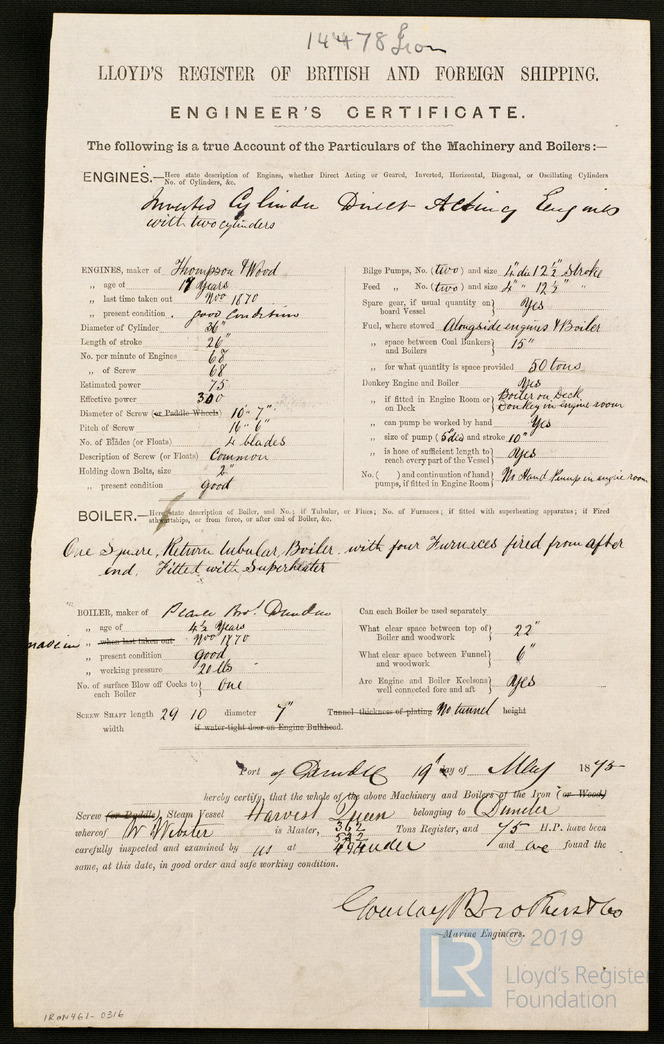 14478 Iron
LLOYD'S REGISTER OF BRITISH AND FOREIGN SHIPPING.
ENGINEER'S CERTIFICATE.
The following is a true Account of the Particulars of the Machinery and Boilers:—
ENGINES.—Here state description of Engines, whether Direct Acting or Geared, Inverted, Horizontal, Diagonal, or Oscillating Cylinders
No. of Cylinders, &c.
Inverted Cylinder Direct Acting Engines
with two cylinders
ENGINES, maker of Thompson & Wood
„ age of 17 Years
„ last time taken out Nov 1870
„ present condition good Condition
Diameter of Cylinder 36"
Length of stroke 26"
No. per minute of Engines 68
„ of Screw 68
Estimated power 75
Effective power 300
Diameter of Screw (or Paddle Wheels) 10' 7"
Pitch of Screw 16' 6"
No. of Blades (or Floats) 4 blades
Description of Screw (or Floats) Common
Holding down Bolts, size 2"
„ present condition good
Bilge Pumps, No. (two) and size 4" dia 12½" Stroke
Feed „ No. (two) and size 4" " 12½" "
Spare gear, if usual quantity on board Vessel } Yes
Fuel, where stowed Alongside engines & Boiler
„ space between Coal Bunkers and Boilers } 15"
„ for what quantity is space provided 50 tons
Donkey Engine and Boiler Yes
„ if fitted in Engine Room or on Deck } Boiler on Deck Donkey in engine room
„ can pump be worked by hand Yes
„ size of pump (5" dia) and stroke 10"
„ is hose of sufficient length to reach every part of the Vessel } Yes
No. ( ) and continuation of hand pumps, if fitted in Engine Room } No Hand Pump in engine room
BOILER.—Here state description of Boiler, and No.; if Tubular, or Flues; No. of Furnaces; if fitted with superheating apparatus; if Fired
athwartships, or from force, or after end of Boiler, &c.
One Square, Return tubular, Boiler, with four Furnaces fired from after
end. Fitted with Superheater
BOILER, maker of Pearce Bros. Dundee
„ age of 4½ Years
made in „ when last taken out Nov 1870
„ present condition good
„ working pressure 20 lbs
No. of surface Blow off Cocks to each Boiler } One
Can each Boiler be used separately
What clear space between top of Boiler and woodwork } 22"
What clear space between Funnel and woodwork } 6"
Are Engine and Boiler Keelsons well connected fore and aft } Yes
SCREW SHAFT length 29 10 diameter 7" Tunnel thickness of plating No tunnel height
width if water-tight door on Engine Bulkhead.
Port of Dundee 19th day of May 1875
hereby certify that the whole of the above Machinery and Boilers of the Iron (or Wood)
Screw (or Paddle) Steam Vessel Harvest Queen belonging to Dundee
whereof W Webster is Master, 362 Tons Register, and 75 H.P. have been
carefully inspected and examined by us at and are found the
same, at this date, in good order and safe working condition.
Gourlay Brothers & Co
Marine Engineers.
LR © 2019
Lloyd's Register
Foundation
IRON461-0316